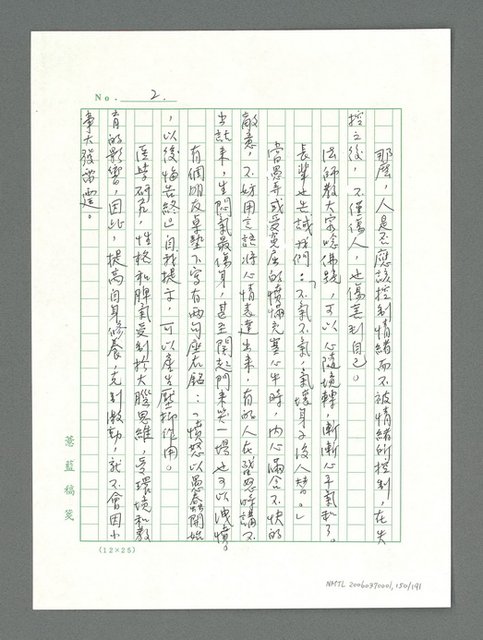 No. 2.
那麼，人是否應該控制情緒而不被情緒所控制，在失
控之後，不僅傷人，也傷害到自己。
法師教大家唸佛號，可以心隨境轉，漸漸心平氣和了。
長輩也告誡我們：「不氣不氣，氣壞身子沒人替。」
當愚弄或受冤屈的憤慨充塞心中時，內心滿含不快的
敵意，不妨用言語將心情表達出來，有的人在盛怒時講不
出話來，生悶氣最傷身，甚至關起門來哭一場也可以洩憤。
有個朋友桌墊下寫有兩句座右銘：「憤怒以愚蠢開始
，以後悔告終」自我提示，可以產生壓抑作用。
醫學研究，性格和脾氣受制於大腦思維，受環境和教
育的影響，因此，提高自身修養，克制激動，就不會因小
事大發雷霆。
薏藍稿箋
(12×25)
NMTL 20060390001, 150/191